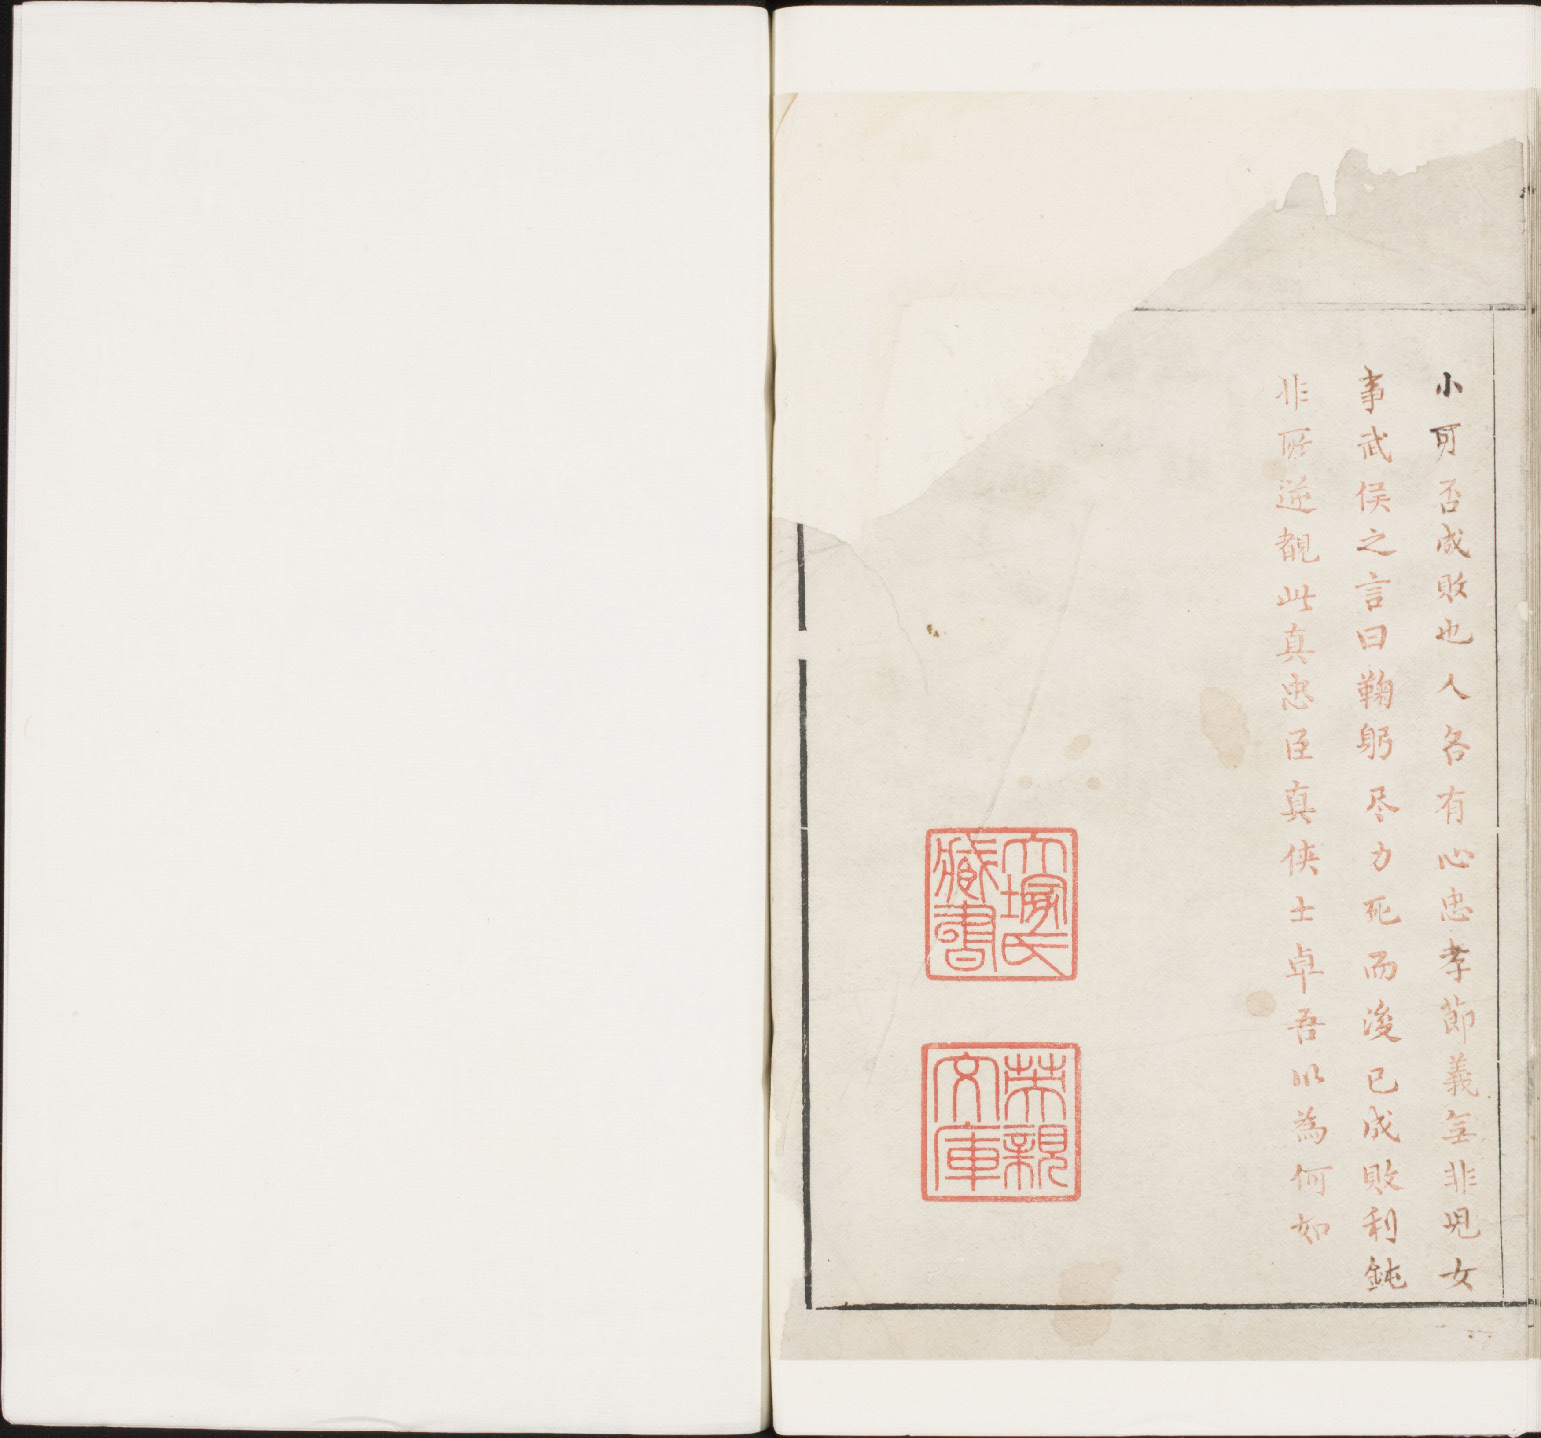 小可否成敗也人各有心忠孝節義無非児女
事武侯之言曰鞠躬尽力死而後已成敗利鈍
非所逆覩此真忠臣真俠士卓吾以為何如
大塚氏
藏書
榮親
文庫